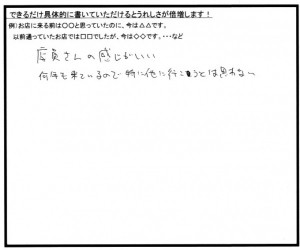 できるだけ具体的に書いていただけるとうれしさが倍増します！
例）お店に来る前は○○と思っていたのに、今は△△です。
以前通っていたお店では□□でしたが、今は◇◇です。・・・など
店員さんの感じがいい
何年も来ているので特に他に行こうとは思わない